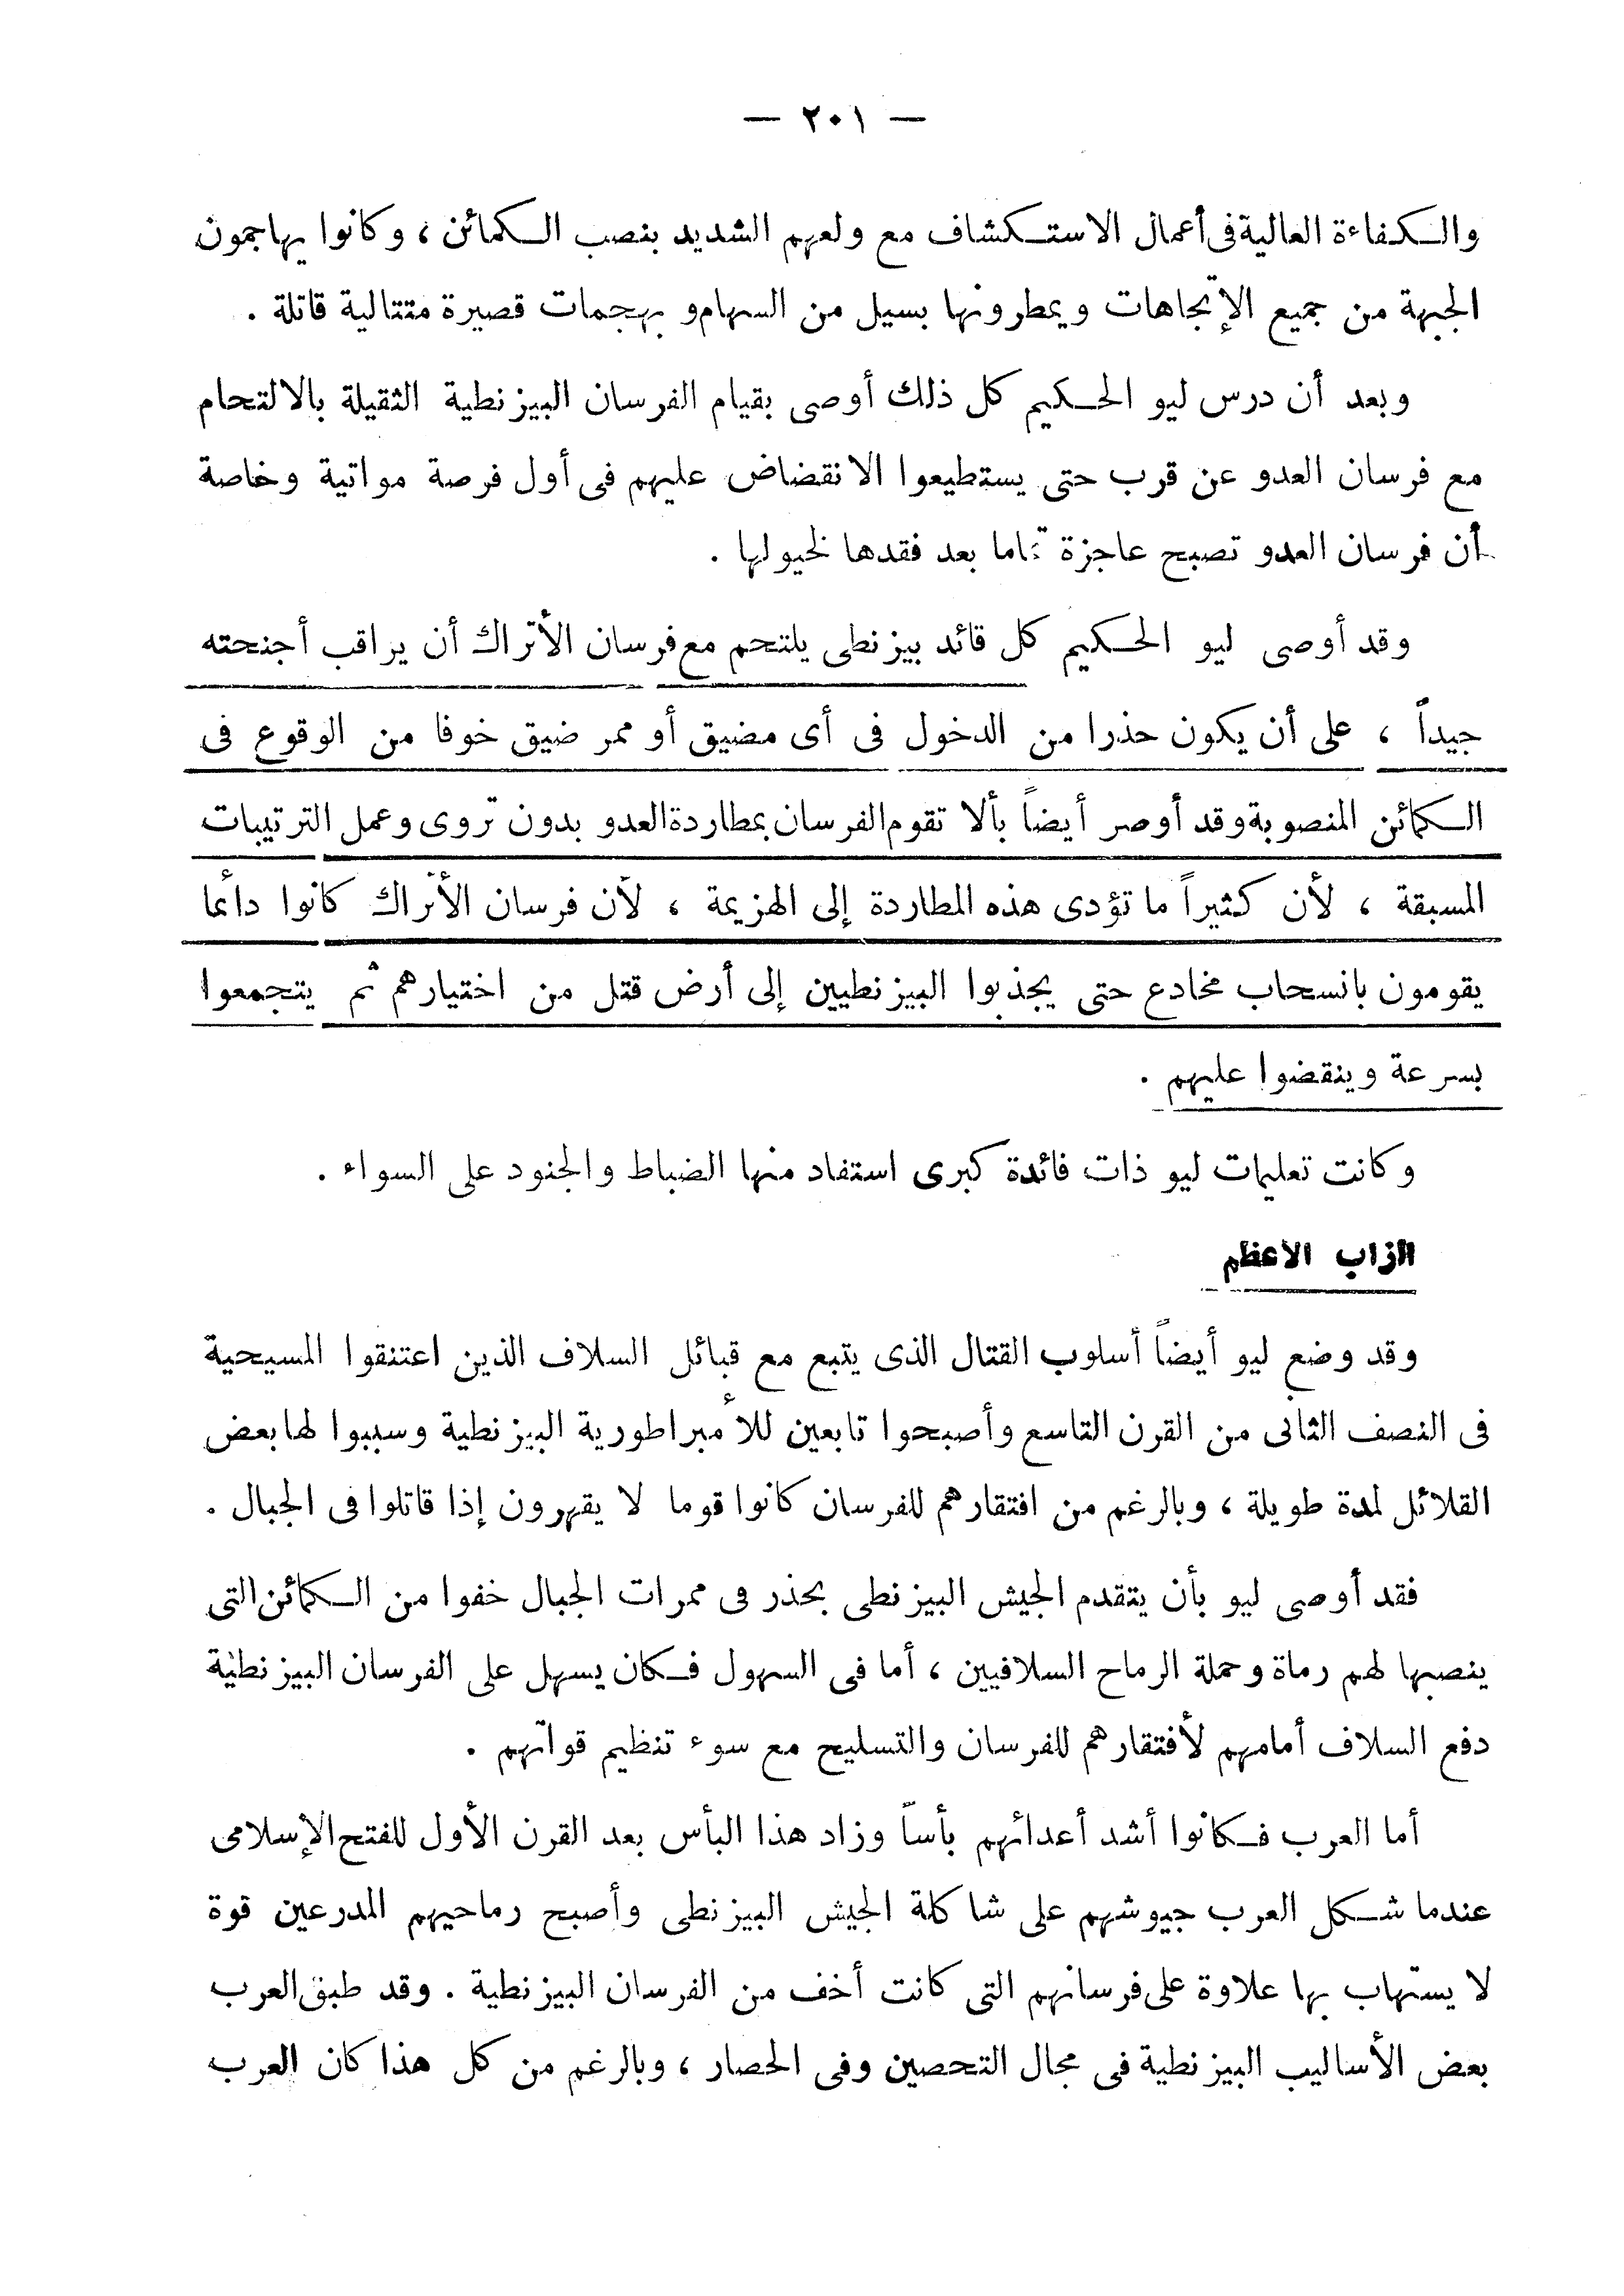 — ٢٠١ —
والكفاءة العالية فى أعمال الاستكشاف مع ولعهم الشديد بنصب الكمائن ، وكانوا يهاجمون
الجبهة من جميع الإتجاهات ويمطرونها بسيل من السهام و بهجمات قصيرة متتالية قاتلة .
وبعد أن درس ليو الحكيم كل ذلك أوصى بقيام الفرسان البيزنطية الثقيلة بالالتحام
مع فرسان العدو عن قرب حتى يستطيعوا الانقضاض عليهم فى أول فرصة مواتية وخاصة
أن فرسان العدو تصبح عاجزة تماما بعد فقدها لخيولها .
وقد أوصى ليو الحكيم كل قائد بيزنطى يلتحم مع فرسان الأتراك أن يراقب أجنحته
جيداً ، على أن يكون حذرا من الدخول فى أى مضيق أو ممر ضيق خوفا من الوقوع فى
الكمائن المنصوبة وقد أوصر أيضاً بألا تقوم الفرسان بمطاردة العدو بدون تروى وعمل الترتيبات
المسبقة ، لأن كثيراً ما تؤدى هذه المطاردة إلى الهزيمة ، لأن فرسان الأتراك كانوا دائما
يقومون بانسحاب مخادع حتى يجذبوا البيزنطيين إلى أرض قتل من اختيارهم ثم يتجمعوا
بسرعة وينقضوا عليهم .
وكانت تعليمات ليو ذات فائدة كبرى استفاد منها الضباط والجنود على السواء .
الزاب الأعظم
وقد وضع ليو أيضاً أسلوب القتال الذى يتبع مع قبائل السلاف الذين اعتنقوا المسيحية
فى النصف الثانى من القرن التاسع وأصبحوا تابعين للأمبراطورية البيزنطية وسببوا لها بعض
القلائل لمدة طويلة ، وبالرغم من افتقارهم للفرسان كانوا قوما لا يقهرون إذا قاتلوا فى الجبال .
فقد أوصى ليو بأن يتقدم الجيش البيزنطى بحذر فى ممرات الجبال خفوا من الكمائن التى
ينصبها لهم رماة وحملة الرماح السلافيين ، أما فى السهول فكان يسهل على الفرسان البيزنطية
دفع السلاف أمامهم لأفتقارهم للفرسان والتسليح مع سوء تنظيم قواتهم .
أما العرب فكانوا أشد أعدائهم بأساً وزاد هذا البأس بعد القرن الأول للفتح الإسلامى
عندما شكل العرب جيوشهم على شاكلة الجيش البيزنطى وأصبح رماحيهم المدرعين قوة
لا يستهاب بها علاوة على فرسانهم التى كانت أخف من الفرسان البيزنطية . وقد طبق العرب
بعض الأساليب البيزنطية فى مجال التحصين وفى الحصار ، وبالرغم من كل هذا كان العرب